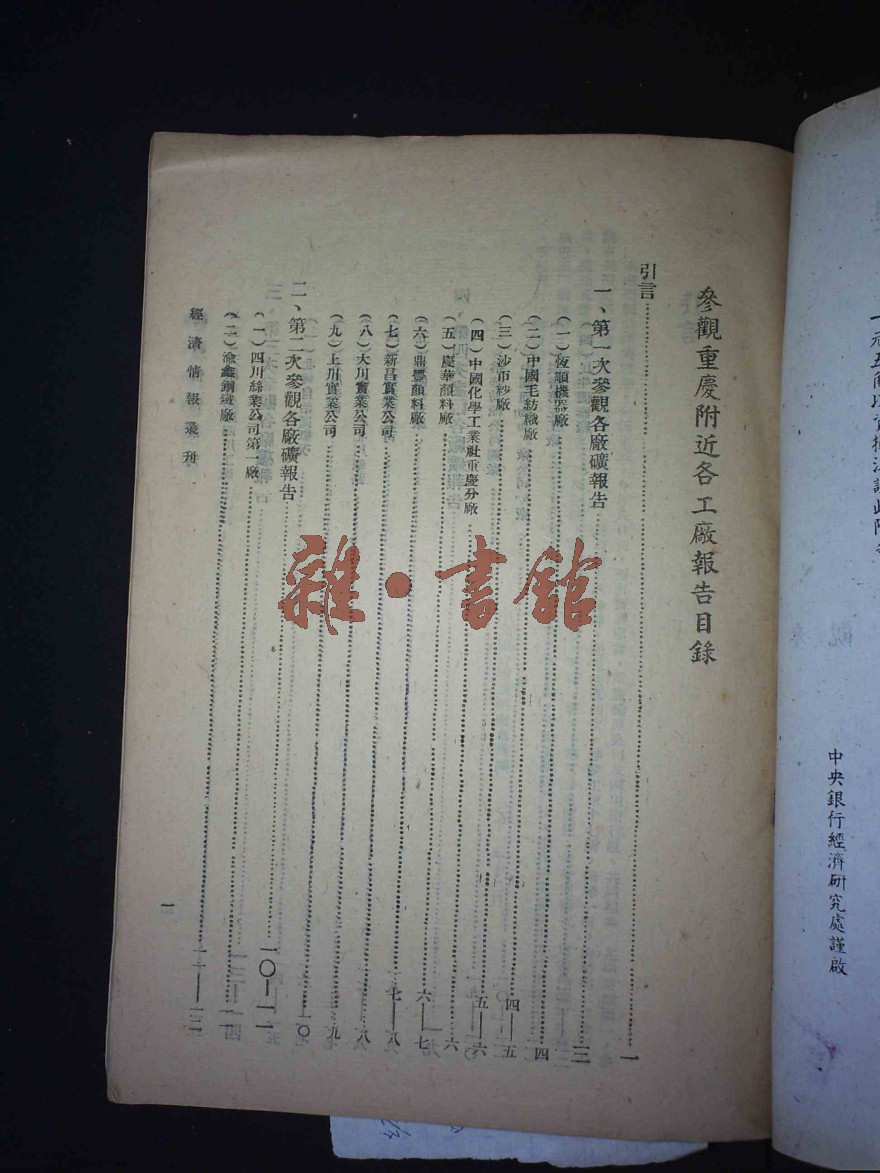 參觀重慶附近各工廠報告目錄
引言…一
一、第一次參觀各廠礦報告
（一）恆順機器廠
（二）中國毛紡織廠…四
（三）沙市紗廠…四—五
（四）中國化學工業社重慶分廠…五—六
（五）慶華顏料廠…六
（六）鼎豐顏料廠…六—七
（七）新昌實業公司…七—八
（八）大川實業公司…八
（九）上川實業公司…九
二、第二次參觀各廠礦報告…一〇
（一）四川絲業公司第一廠…一〇—一一
（二）渝鑫鋼鐵廠
經濟情報叢刊
一
中央銀行經濟研究處謹啟
雜·書館